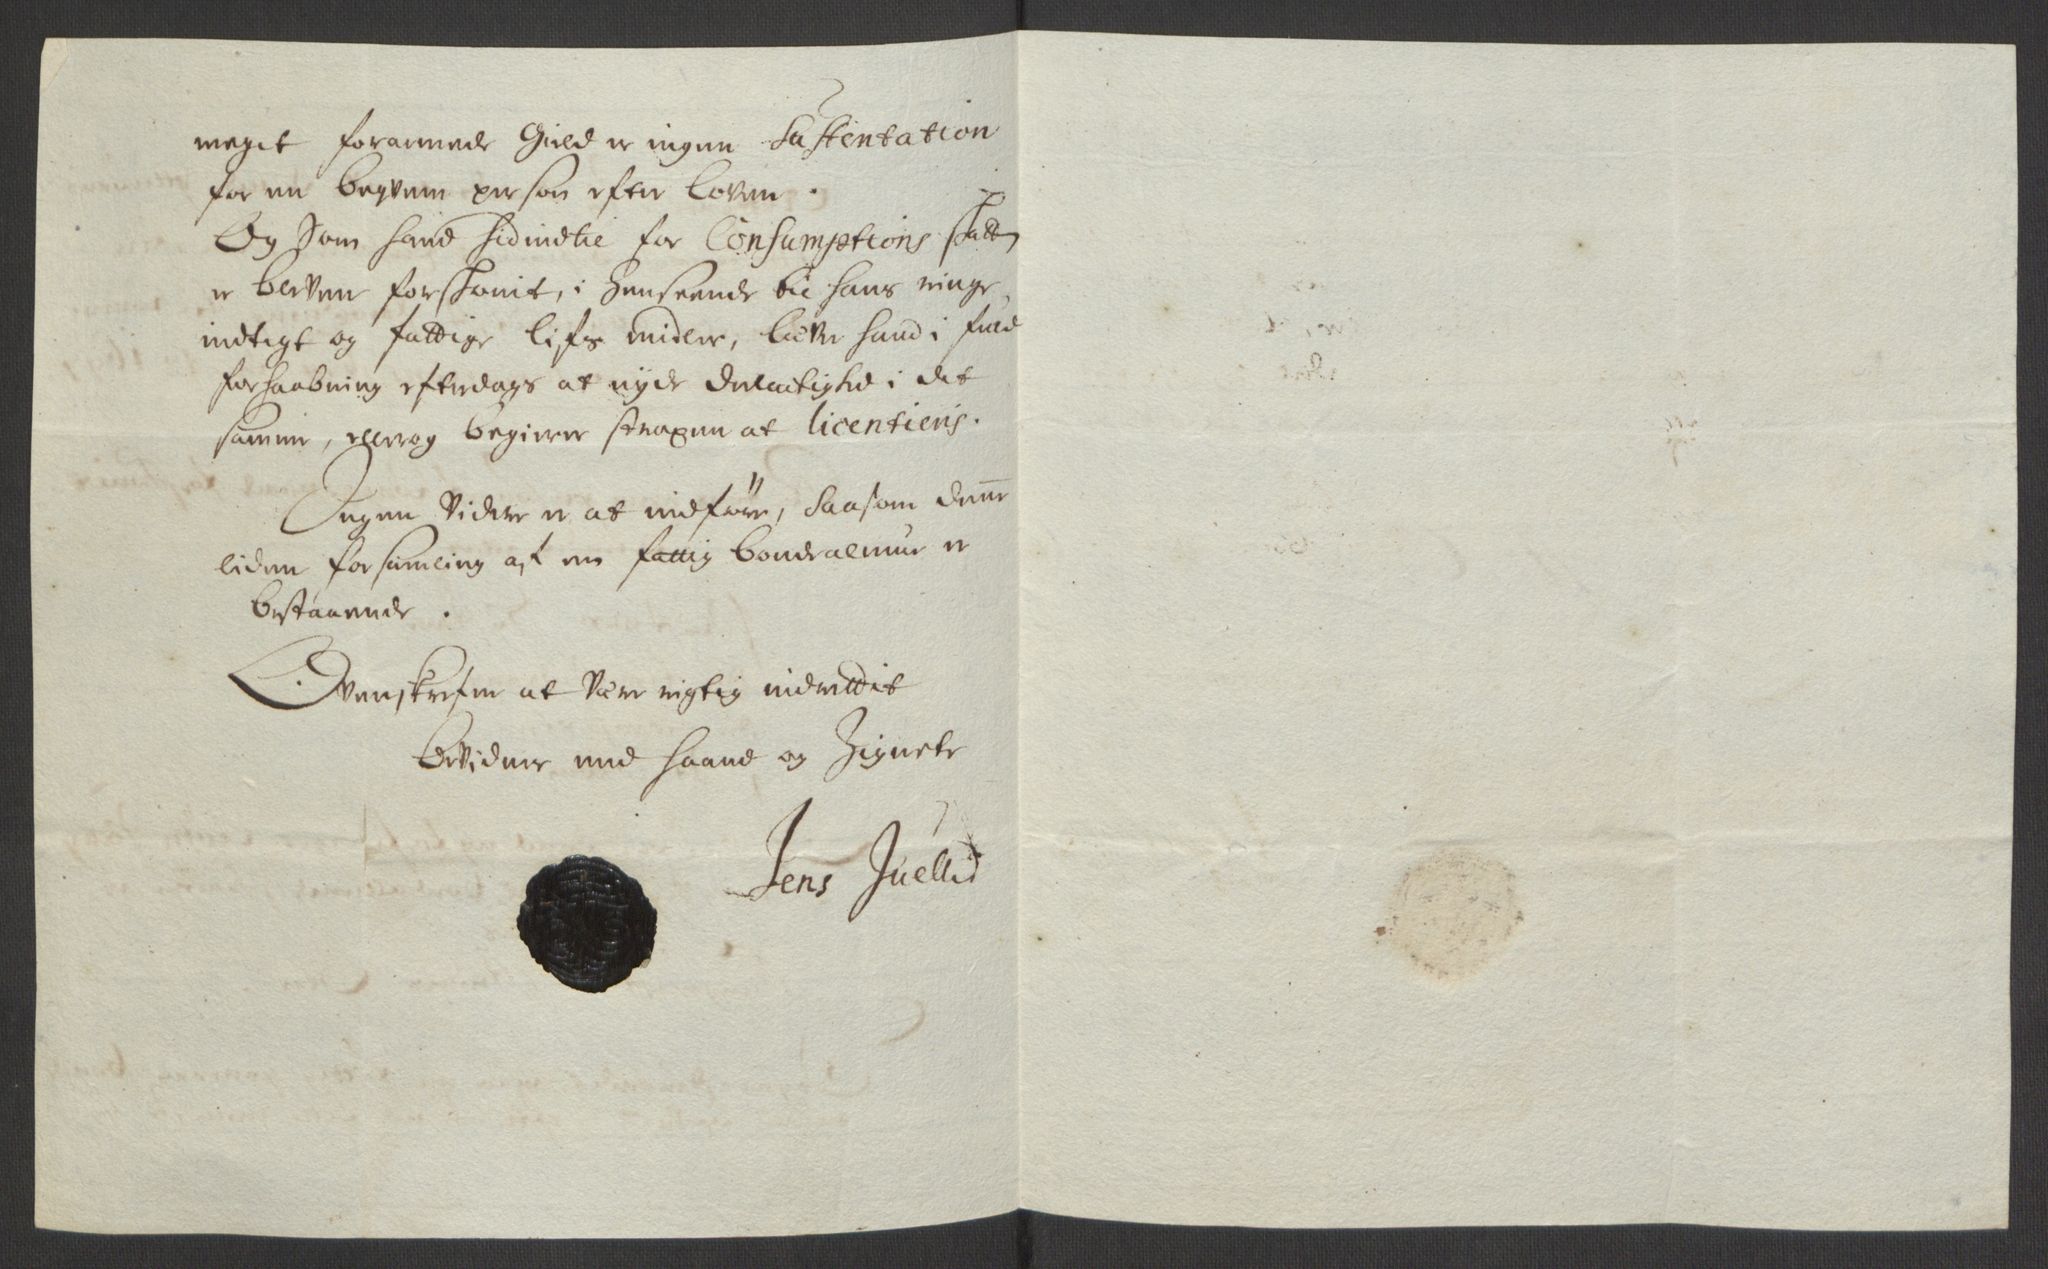 meget forarmede Gield er ingen Sustentation
for en beqvem person efter loven.
Og Som hand hidindtil for Consumptions skatten
er bleven forskonit, i henseende til hans ringe
indtegt og fattige lifs midler, lever hand i fuld
forhaabning efterdags at nyde delactighed i det
samme, ellerog begierer strapen at licentieris.
Ingen videre er at indføre, saasom denne
liden forsamling af en fattig bondealmue er
bestaaende.
Ovenskrefne at være rigtig indrettit
bevidner med haand og Zignete
Jens Juellid